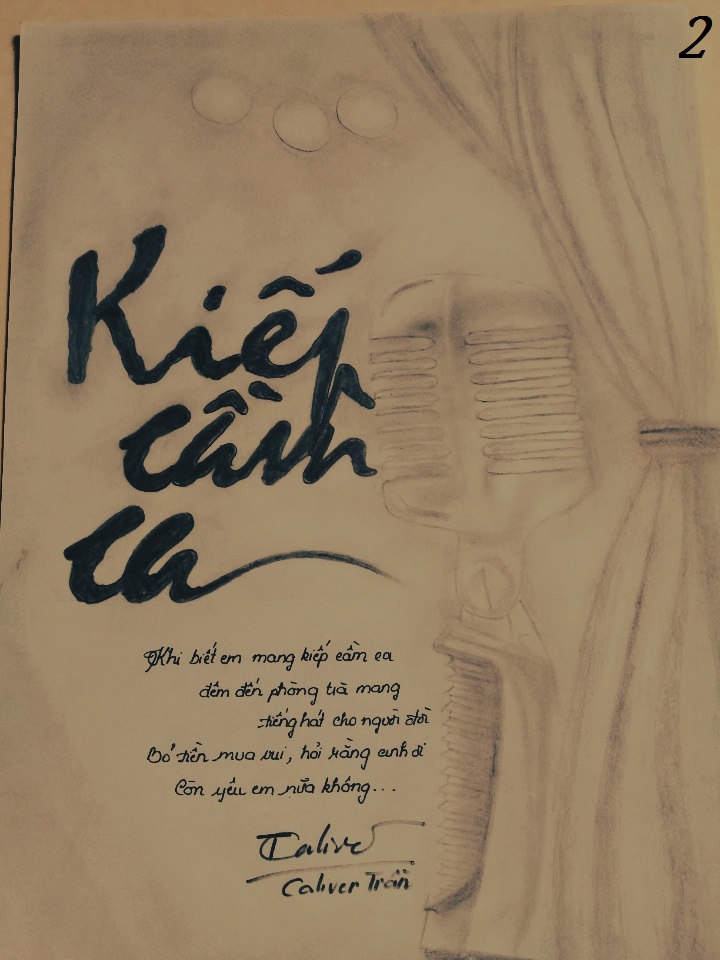 2
Kiếp
cầm
ca
Khi biết em mang kiếp cầm ca
đêm đến phòng trà mang
tiếng hát cho người đời
Bỏ tiền mua vui, hỏi rằng anh ơi
Còn yêu em nữa không...
Calive
Caliver Trần